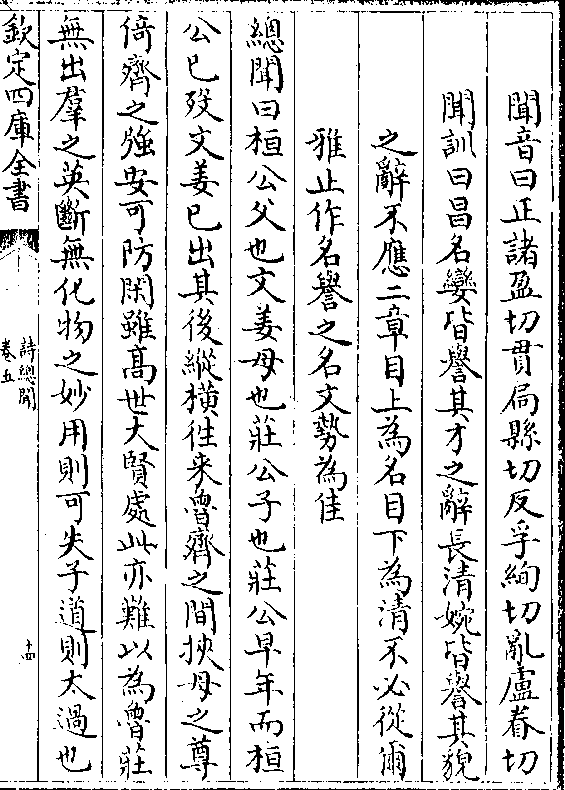 聞音曰正諸盈切貫扃縣切反孚絢切亂盧眷切
聞訓曰昌名孌皆譽其才之辭長清婉皆譽其貌
之辭不應二章目上為名目下為清不必從爾
雅止作名譽之名文勢為佳
總聞曰桓公父也文姜母也莊公子也莊公早年而桓
公已殁文姜已出其後縱橫往来魯齊之間挾母之尊
倚齊之强安可防閑雖髙世大賢處此亦難以為魯莊
無出羣之英斷無化物之妙用則可失子道則太過也
欽定四庫全書
詩總聞
卷五
十四